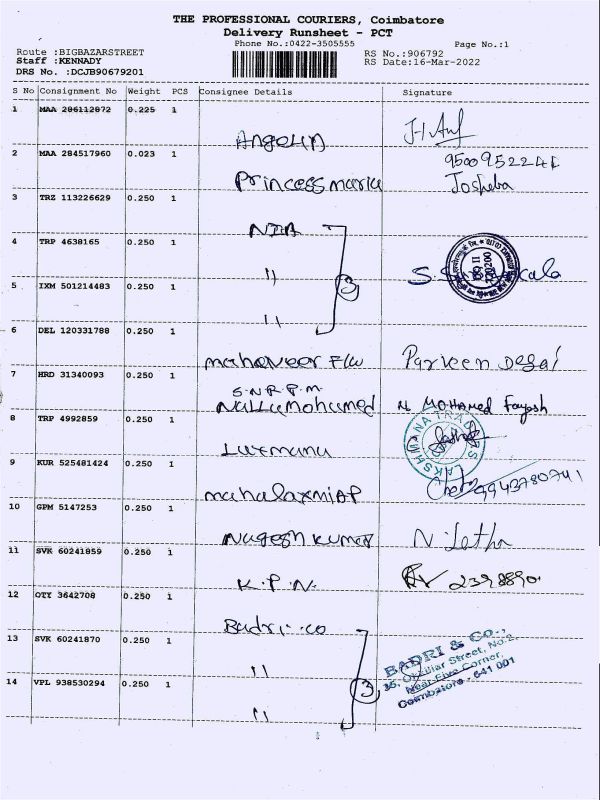 THE PROFESSIONAL COURIERS, Coimbatore
Delivery Runsheet - PCT
Phone No.:0422-3505555
Page No.:1
Route :BIGBAZARSTREET
Staff :KENNADY
DRS No. :DCJB90679201
RS No.:906792
RS Date:16-Mar-2022
S No Consignment No Weight PCS Consignee Details Signature
1 MAA 286112072 0.225 1
Angelin
2 MAA 284517960 0.023 1
Princess maria
9500952241
Josheba
3 TRZ 113226629 0.250 1
NIA
4 TRP 4638165 0.250 1
" 3
5 IXM 501214483 0.250 1
"
6 DEL 120331788 0.250 1
mahaveer F/W Parveen Desai
7 HRD 31340093 0.250 1
S.N.R.P.M.
Nallamohamed N MOHAMED Fayash
8 TRP 4992859 0.250 1
Laxmana
9 KUR 525481424 0.250 1
mahalaxmi AP 9943780741
10 GPM 5147253 0.250 1
Nagesh kumar N. Letha
11 SVK 60241859 0.250 1
K.P.N. 2398890
12 OTY 3642708 0.250 1
Badri. co
13 SVK 60241870 0.250 1
"
BADRI & Co.,
Street, No.2,
Near Five Corner,
Coimbatore - 641 001
14 VPL 938530294 0.250 1
" 3